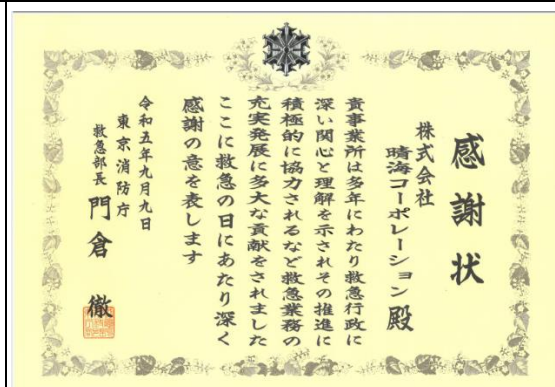 感謝状
株式会社
晴海コーポレーション殿
貴事業所は多年にわたり救急行政に
深い関心と理解を示されその推進に
積極的に協力されるなど救急業務の
充実発展に多大な貢献をされました
ここに救急の日にあたり深く
感謝の意を表します
令和五年九月九日
東京消防庁
救急部長 門倉 徹